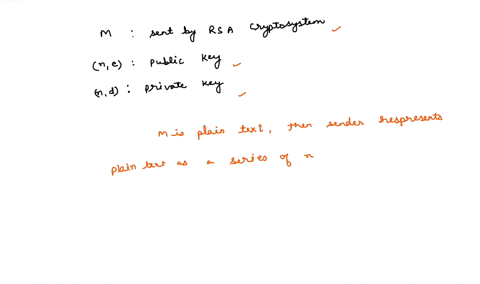 M : sent by RSA Cryptosystem
(n,e) : Public Key
(n,d) : private Key
M is plain text, then sender hrespresents
plain text as a series of n